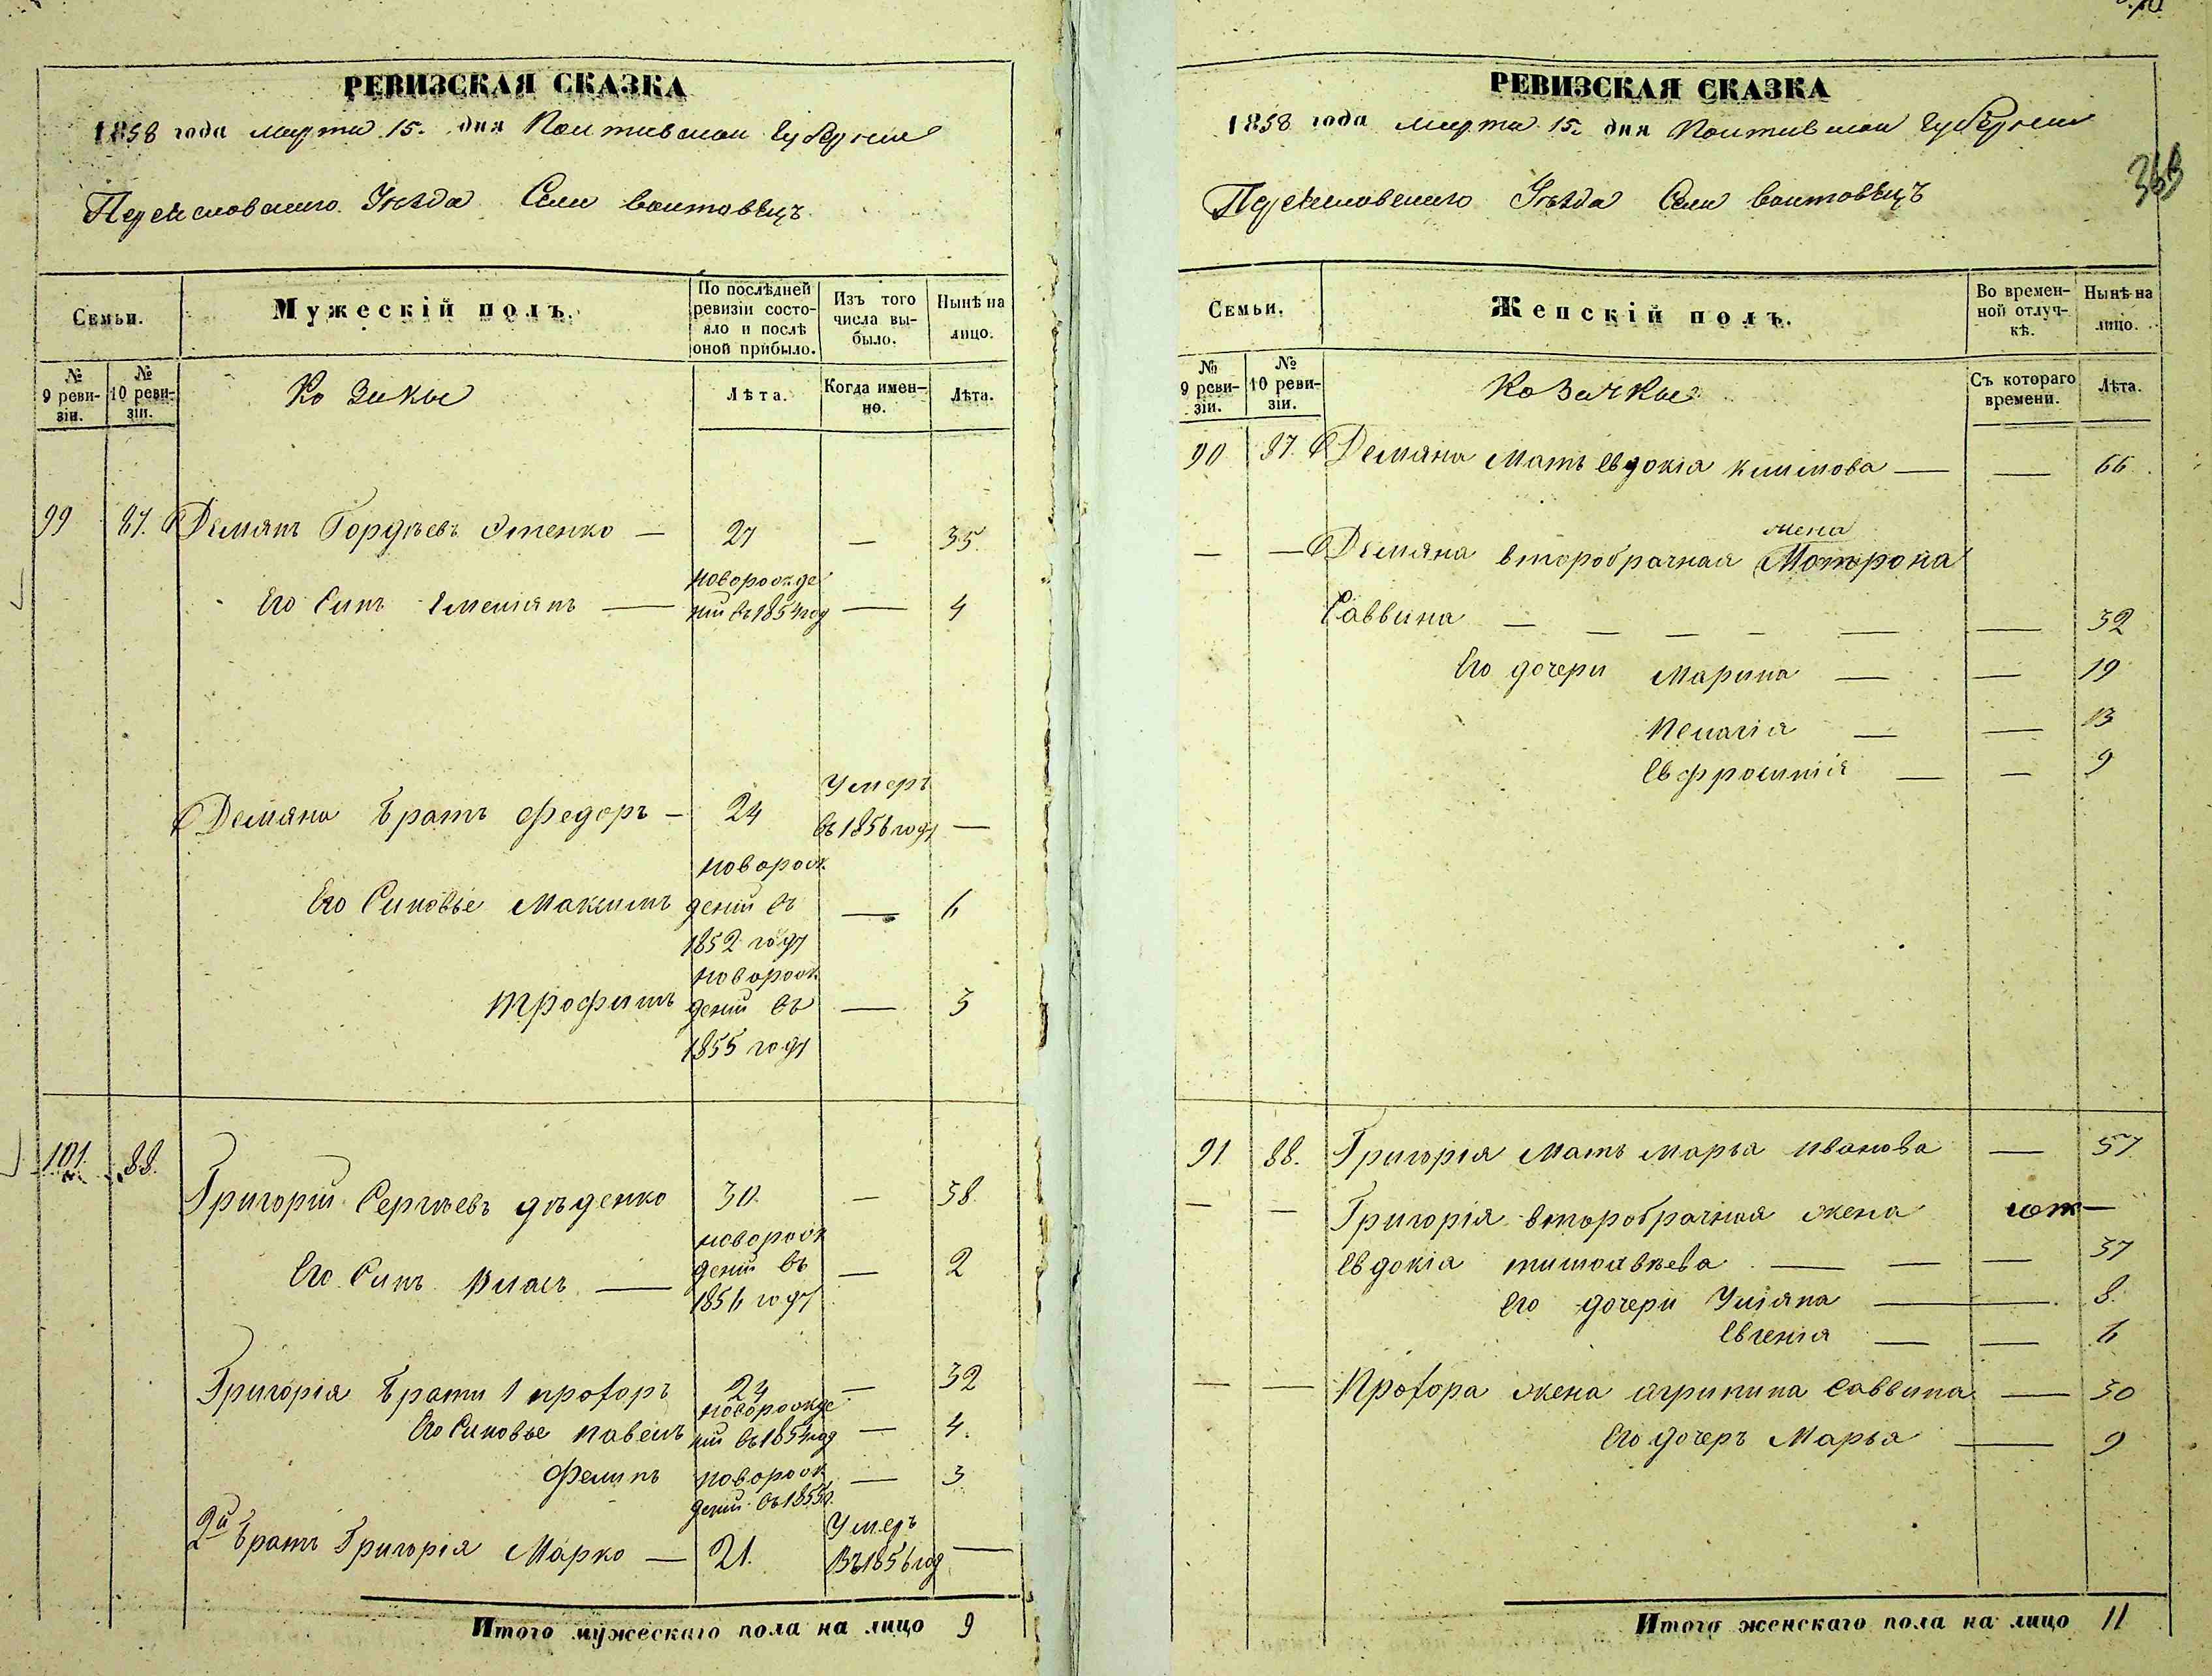 РЕВИЗСКАЯ СКАЗКА
1858 года марта 15. дня Полтавской Губерніи
Переяславскаго Уѣзда Села Воитовецъ
Семьи.
Мужескій полъ.
По послѣдней ревизіи состояло и послѣ оной прибыло.
Изъ того числа выбыло.
Нынѣ на лицо.
№ 9 ревизіи.
№ 10 ревизіи.
Козаки
Лѣта.
Когда именно.
Лѣта.
99 87. Демянъ Гордѣевъ Отенко — 27 — 35.
Его Синъ Емелянъ — новорожденій въ 1854 год — 4
Демяна Братъ Федоръ — 24 Умеръ въ 1856 году —
Его Синовье Максимъ новорожденій въ 1852 году — 6
Трофимъ новорожденій въ 1855 году — 3
101. 88.
Григорій Сергѣевъ дѣденко 30. — 38.
Его Синъ Власъ — новорожденій въ 1856 году — 2
Григорія Брати 1 проѳоръ 24 — 32
Его Синовье павелъ новорожденій въ 1854 год — 4.
Филипъ новорожденій въ 1855 г. — 3
2й Братъ Григорія Марко — 21. Умеръ Въ 1856 год —
Итого мужескаго пола на лицо 9
РЕВИЗСКАЯ СКАЗКА
1858 года марта 15. дня Полтавской Губерніи
Переяславскаго Уѣзда Села Воитовецъ
Семьи.
Женскій полъ.
Во временной отлучкѣ.
Нынѣ на лицо.
№ 9 ревизіи.
№ 10 ревизіи.
Козачки
Съ котораго времени.
Лѣта.
90 87. Демяна Мать Евдокіа климова — — 66.
— — Демяна второбрачная жена Мотрона
Саввина — — — — — — 32
Его дочери Марина — — 19
Пелагіа — — 13
Евфросинія — — 9
91. 88. Григорія Мать Марья иванова — 57
— — Григорія второбрачная жена —
Евдокіа тимофѣева — — — 37
Его дочери Уліяна — 8.
Евгенія — — 6
— — Проѳора жена агрипина саввина — 30
Его дочеръ Марья — 9
Итого женскаго пола на лицо 11